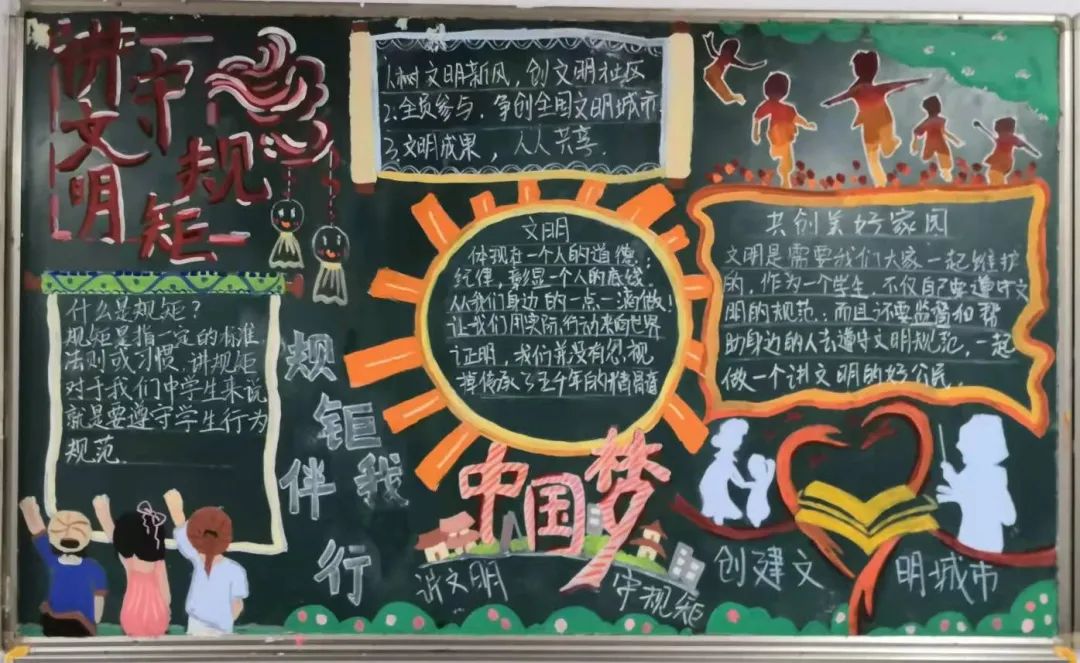 讲文明
守规矩
1.树文明新风，创文明社区
2.全员参与，争创全国文明城市
3.文明成果，人人共享.
什么是规矩？
规矩是指一定的标准，
法则或习惯.讲规矩
对于我们中学生来说
就是要遵守学生行为
规范
规钜伴我行
文明
体现在一个人的道德，
纪律，彰显一个人的底线
从我们身边的一点一滴做！
让我们用实际行动来向世界
证明，我们并没有忽视
掉传承了五千年的精骨值
共创美好家园
文明是需要我们大家一起维护
的，作为一个学生，不仅自己要遵守文
明的规范；而且还要监督和帮
助身边的人去遵守文明规范，一起
做一个讲文明的好公民.
中国梦
讲文明
守规矩
创建文明城市